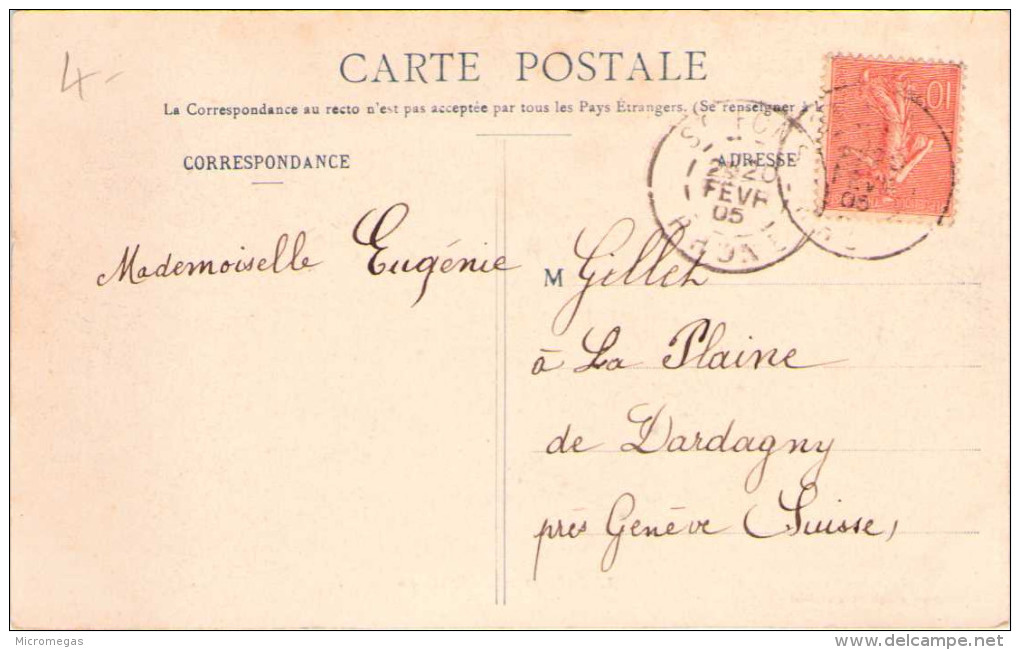 4-
CARTE POSTALE
La Correspondance au recto n'est pas acceptée par tous les Pays Étrangers. (Se renseigner à l
CORRESPONDANCE
ADRESSE
10
ST FONS
20
FEVR
05
RHONE
05
Mademoiselle Eugénie M Gillet
à La Plaine
de Dardagny
près Genève (Suisse)
Micromegas
www.delcampe.net